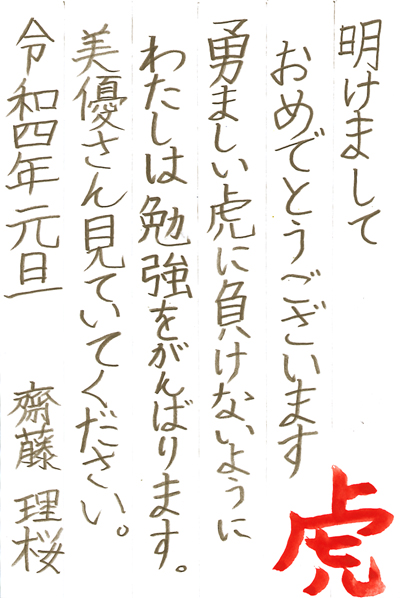 明けまして
おめでとうございます
勇ましい虎に負けないように
わたしは勉強をがんばります。
美優さん見ていてください。
令和四年元旦
齋藤理桜
虎